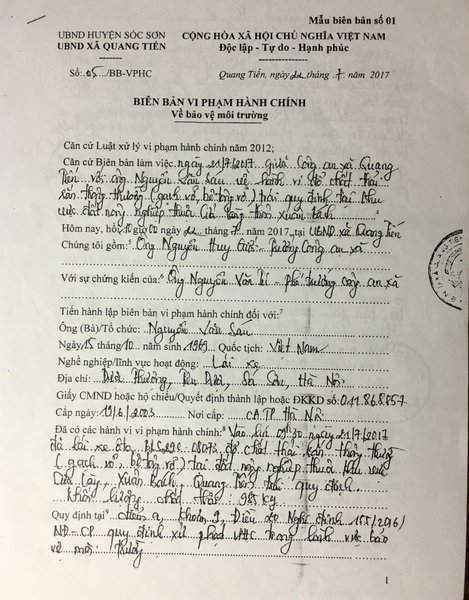 Mẫu biên bản số 01
UBND HUYỆN SÓC SƠN
UBND XÃ QUANG TIẾN
CỘNG HÒA XÃ HỘI CHỦ NGHĨA VIỆT NAM
Độc lập - Tự do - Hạnh phúc
Số: 05 /BB-VPHC
Quang Tiến, ngày 22 tháng 7 năm 2017
BIÊN BẢN VI PHẠM HÀNH CHÍNH
Về bảo vệ môi trường
Căn cứ Luật xử lý vi phạm hành chính năm 2012;
Căn cứ Biên bản làm việc ngày 21/7/2017 giữa Công an xã Quang
Tiến với ông Nguyễn Văn Sáu về hành vi đổ chất thải
rắn thông thường (gạch vỡ, bê tông vỡ) trái quy định tại khu
vực đất nông nghiệp thuộc Xuân Bách
Hôm nay, hồi giờ ngày 22 tháng 7 năm 2017, tại UBND xã Quang Tiến
Chúng tôi gồm: Ông Nguyễn Huy - Trưởng Công an xã
Với sự chứng kiến của: Ông Nguyễn Văn - Phó trưởng công an xã
Tiến hành lập biên bản vi phạm hành chính đối với:
Ông (Bà)/Tổ chức: Nguyễn Văn Sáu
Ngày 15 tháng 10 năm sinh 1969 Quốc tịch: Việt Nam
Nghề nghiệp/lĩnh vực hoạt động: Lái xe
Địa chỉ: Phượng, Sóc Sơn, Hà Nội
Giấy CMND hoặc hộ chiếu/Quyết định thành lập hoặc ĐKKD số: 011868857
Cấp ngày: 19/6/2003 Nơi cấp: CA.TP Hà Nội
Đã có các hành vi vi phạm hành chính: Vào lúc 09h30 ngày 21/7/2017
đã lái xe ôtô BKS 29C - 08073 đổ chất thải rắn thông thường
(gạch vỡ, bê tông vỡ) tại đất nông nghiệp thuộc khu vực
Cửa Xuân Bách, Quang Tiến trái quy định.
Khối lượng chất thải: 985 Kg
Quy định tại: điểm a, khoản 2, Điều 20 Nghị định 155/2016/
NĐ-CP quy định xử phạt VPHC trong lĩnh vực bảo
vệ môi trường
1